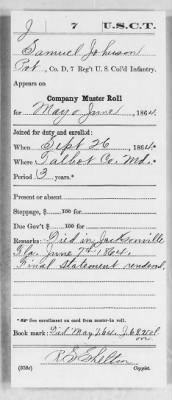 J 7 U.S.C.T.
Samuel Johnson
Pvt, Co. D, 7 Reg't U. S. Col'd Infantry.
Appears on
Company Muster Roll
for May & June, 1864.
Joined for duty and enrolled:
When Sept 26, 186
Where Talbot Co. Md.
Period 3 years.*
Present or absent
Stoppage, $ 100 for
Due Gov't $ 100 for
Remarks: Died in Jacksonville
Fla. June 7th 1864.
Final statement rendered.
*See enrollment on card from muster-in roll.
Book mark:
R E Shelton
(358c) Copyist.